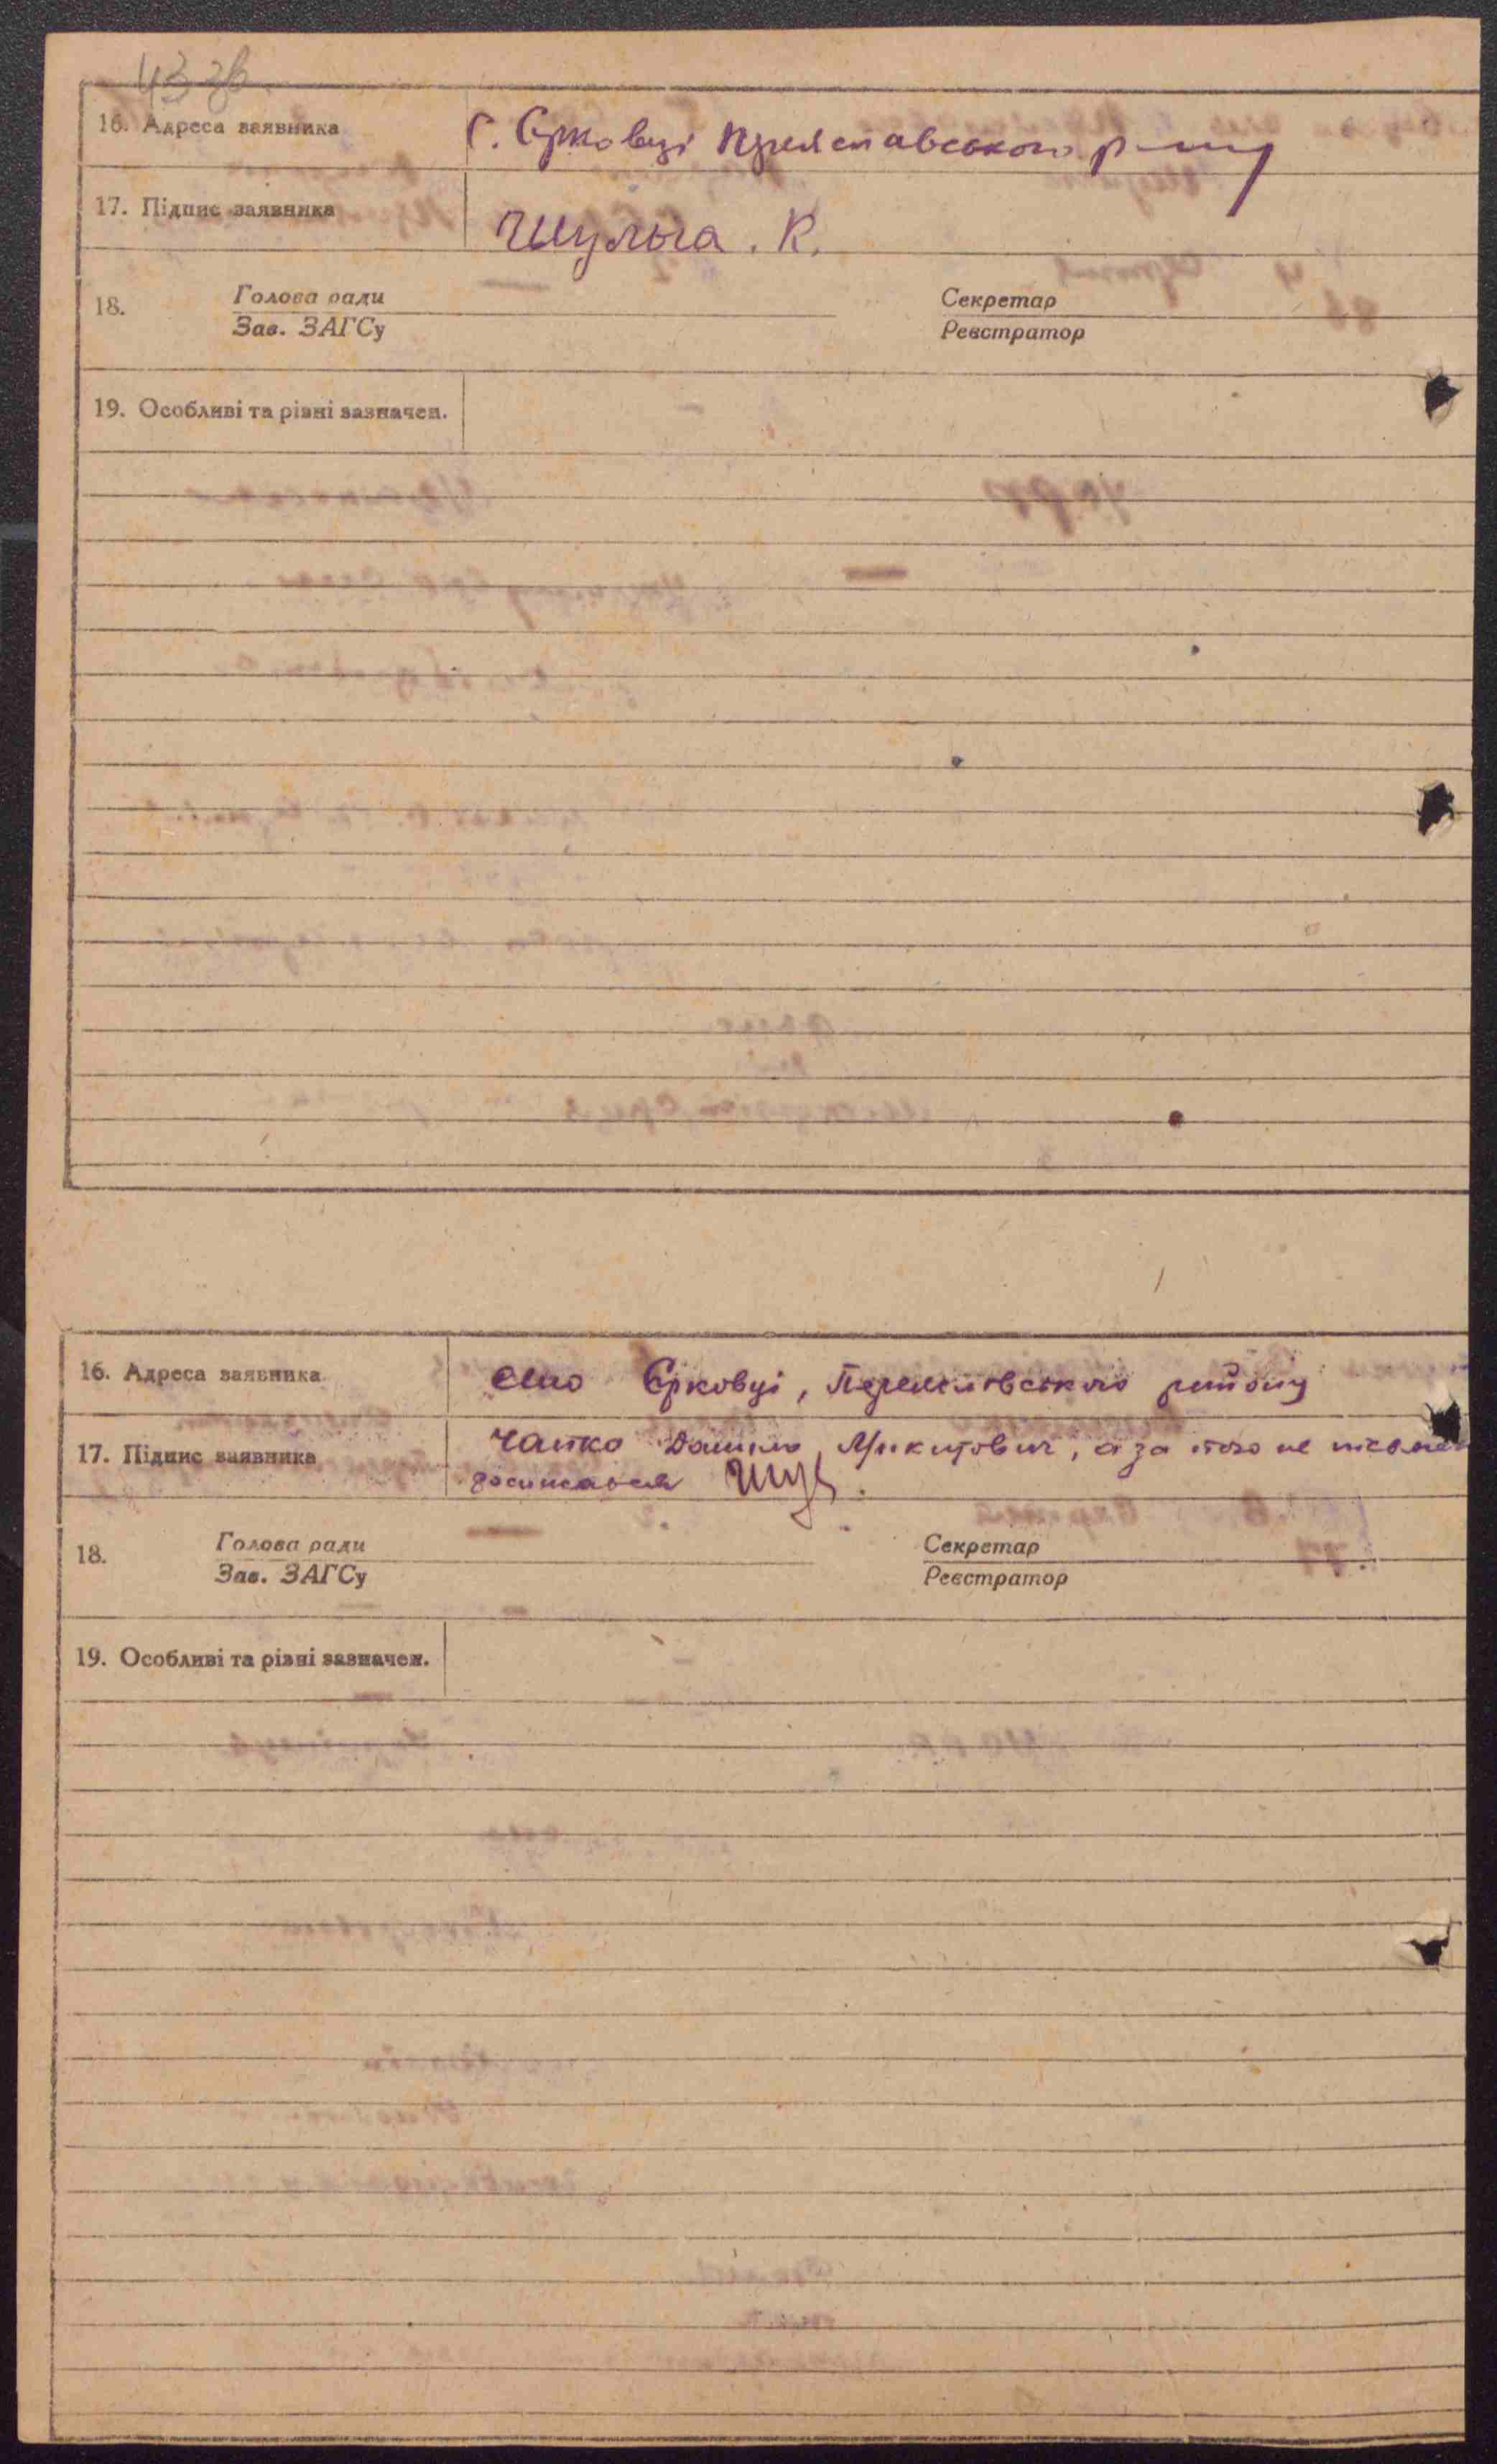 43 зв
16. Адреса заявника С. Єрковці Переяславського р-ну
17. Підпис заявника Шульга. К.
Голова ради Секретар
18.
Зав. ЗАГСу Реєстратор
19. Особливі та різні зазначен. –
16. Адреса заявника село Єрковці, Переяславського району
17. Підпис заявника Чайко Данило Микитович, а за його не письмен
росписався
Голова ради Секретар
18.
Зав. ЗАГСу Реєстратор
19. Особливі та різні зазначен. –